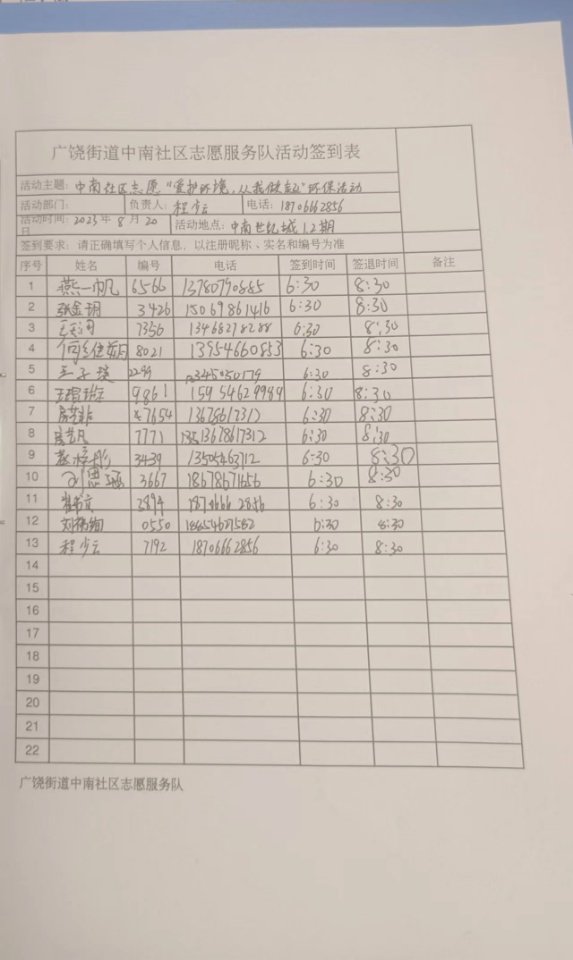 广饶街道中南社区志愿服务队活动签到表
活动主题: 中南社区志愿“爱护环境，从我做起”环保活动
活动部门: 负责人: 程少云 电话: 18706662856
活动时间: 2023年8月20日 活动地点: 中南世纪城12期
签到要求: 请正确填写个人信息，以注册昵称、实名和编号为准
序号 姓名 编号 电话 签到时间 签退时间 备注
1 燕一帆 6566 13780790885 6:30 8:30
2 张金玥 3426 15069861416 6:30 8:30
3 7356 13468278288 6:30 8:30
4 8021 13954660853 6:30 8:30
5 王子琪 2299 6:30 8:30
6 9861 15954629989 6:30 8:30
7 7654 13678617312 6:30 8:30
8 7771 6:30 8:30
9 3439 13505463712 6:30 8:30
10 刘思 3667 18678671456 6:30 8:30
11 2894 18706662856 6:30 8:30
12 0550 6:30 8:30
13 程少云 7192 18706662856 6:30 8:30
14
15
16
17
18
19
20
21
22
广饶街道中南社区志愿服务队